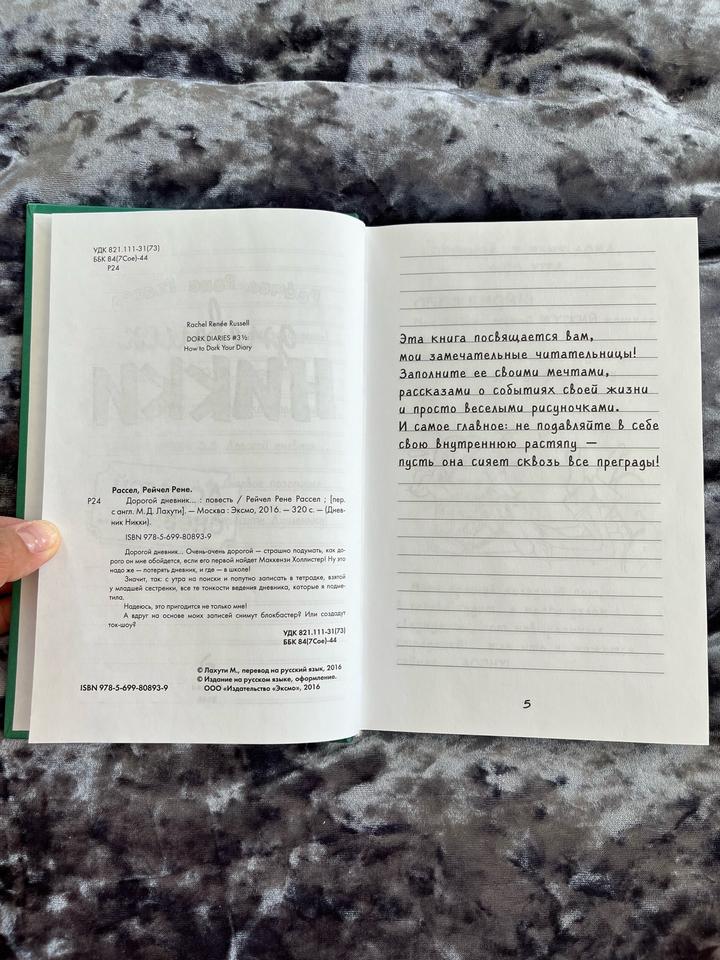 УДК 821.111-31(73)
ББК 84(7Сое)-44
Р24
Rachel Renée Russell
DORK DIARIES #3 ½:
How to Dork Your Diary
Рассел, Рейчел Рене.
Р24 Дорогой дневник... : повесть / Рейчел Рене Рассел ; [пер.
с англ. М. Д. Лахути]. — Москва : Эксмо, 2016. — 320 с. — (Днев-
ник Никки).
ISBN 978-5-699-80893-9
Дорогой дневник... Очень-очень дорогой — страшно подумать, как до-
рого он мне обойдется, если его первой найдет Маккензи Холлистер! Ну это
надо же — потерять дневник, и где — в школе!
Значит, так: с утра на поиски и попутно записать в тетрадке, взятой
у младшей сестренки, все те тонкости ведения дневника, которые я подме-
тила.
Надеюсь, это пригодится не только мне!
А вдруг на основе моих записей снимут блокбастер? Или создадут
ток-шоу?
УДК 821.111-31(73)
ББК 84(7Сое)-44
© Лахути М., перевод на русский язык, 2016
© Издание на русском языке, оформление.
ISBN 978-5-699-80893-9 ООО «Издательство «Эксмо», 2016
Эта книга посвящается вам,
мои замечательные читательницы!
Заполните ее своими мечтами,
рассказами о событиях своей жизни
и просто веселыми рисуночками.
И самое главное: не подавляйте в себе
свою внутреннюю растяпу —
пусть она сияет сквозь все преграды!
5